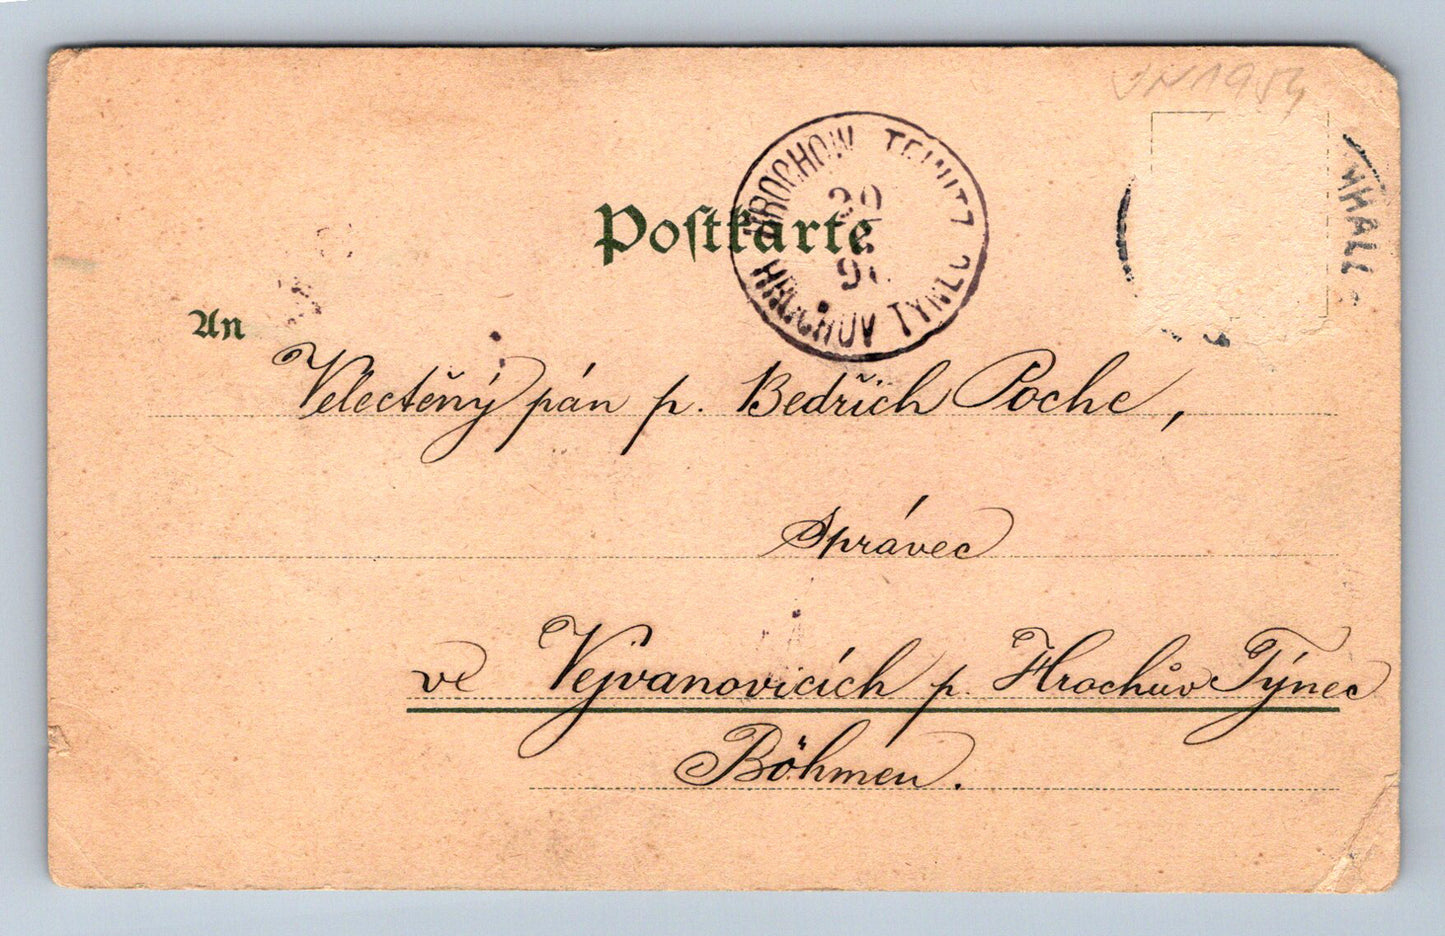 JN1954
Postkarte
HROCHOW TEINITZ
HROCHŮV TÝNEC
An
Velectěný pán p. Bedřich Poche,
Správec
ve Vejvanovicích p. Hrochův Týnec
Böhmen.